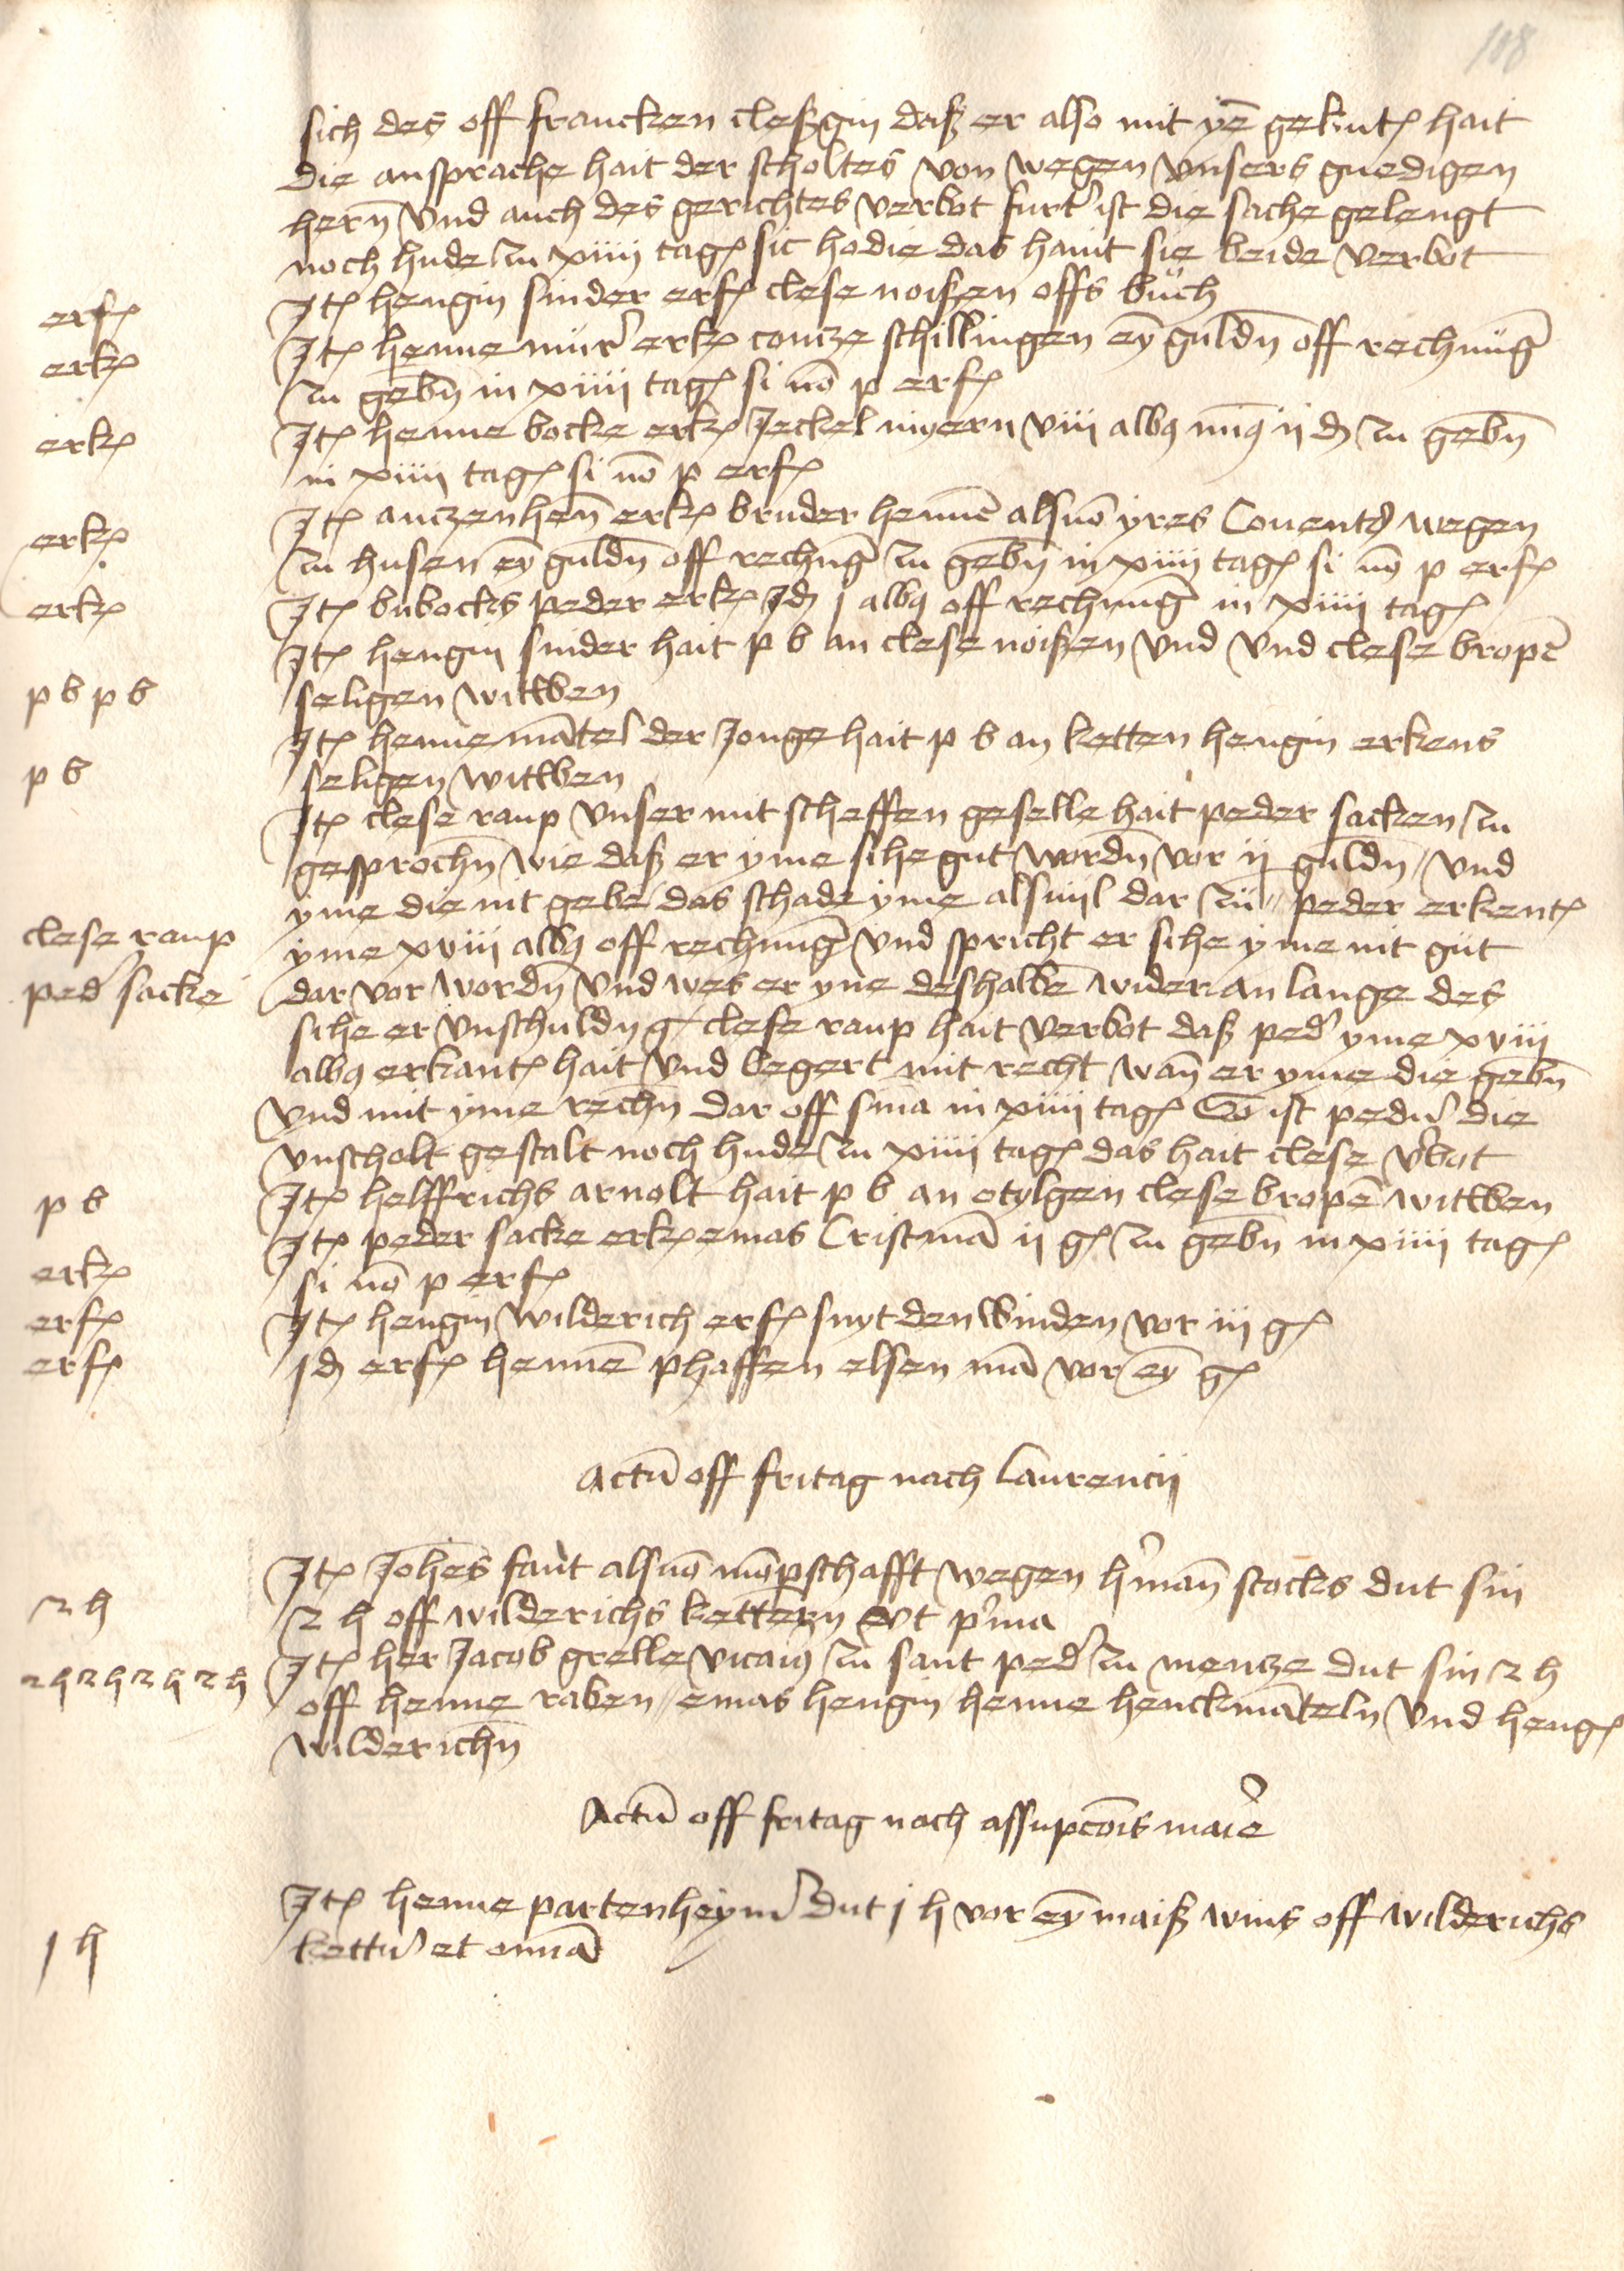 108
sich des off francken cleßgin daß er also mit ym̄ gekut hait
die ansprache hait der scholtes von wegen vnsers gnedigen
hern̄ vnd auch des gerichtes verbot furt' ist die sache gelengt
noch hude zu xiiij tag sic hodie das haint sie beide verbot
erf Jt hengin snider erf clese noißen offs buch
erk Jt henne mur' erk contze schillingen ey̅ guldn̄ off rechnūg
zu gebn̄ in xiiij tag si nō p erf
erk Jt henne bocke erk Jeckel viij albq īj d zu gebn̄
in xiiij tag si nō p erf
erk Jt anczenhen̄ erk bruder hennē als vō yres Conentz wegen
zu husen ey̅ guldn̄ off rechnūg zu gebn̄ in xiiij tag si nō p erf
erk Jt bubocks peder erk Jd j albq off rechnūg in xiiij tag
Jt hengin snider hait p b an clese noißen vnd vnd clese bropē
p b p b seligen witwen
Jt henne mātel der Jonge hait p b an ketten hengin erkens
p b seligen witwen
Jt clese raup vnser mit scheffen geselle hait peder sacken zu
gesprochn̄ wie daß er yme sihe gut wordn̄ vor ij guldn̄ vnd
yme die nit gebe das schade yme als vijl dar zu peder erkent
clese raup yme xviij albq off rechnūg vnd spricht er sihe yme nit gut
ped' sacke dar vor wordn̄ vnd wes er yne deshalbē wider an lange des
sihe er vnschuldig clese raup hait verbot daß ped' yme xviij
albq erkant hait vnd begert mit recht wan̄ er yme die gebn̄
vnd mit yme rechn̄ dar off sn̄ia in xiiij tag So ist ped'n die
vnscholt gestalt noch hude zu xiiij tag das hait clese v'bot
p b Jt helffrichs arnolt hait p b an clese bropē witwen
Jt peder sacke erk emas Cristmā ij g zu gebn̄ in xiiij tag
erk si nō p erf
erf Jt hengin wilderich erf snyt den winden vor iij g
erf Jd erf hennē phaffen elsen mā vor ey̅ g
Actū off fritag nach laurencij
Jt Johēs faut als vō mōpschafft wegen h'man̄ stocks dut sin
2 h 2 h off wilderichs kettern vt p'ma
Jt her Jacob grelle vicaiq zu sant ped' zu mencze dut sin 2 h
2 h 2 h 2 h 2 h off henne raben emas hengin henne henckmāteln vnd heng
wilderichn̄
Actū off fritag nach assupcōis marie
Jt henne partenheym' dut j h vor ey̅ maiß wins off wilderichs
j h kett'n et omīa